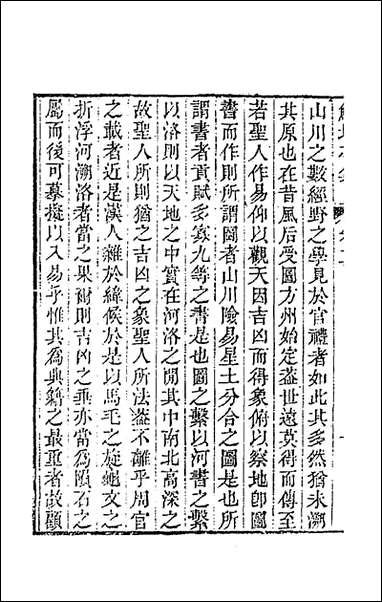 山川之數經野之學見於官禮者如此其多然猶未溯
其原也在昔風后受圖方州始定蓋世遠莫得而傳至
若聖人作易仰以觀天因吉凶而得象俯以察地卽圖
書而作則所謂圖者山川險易星土分合之圖是也所
謂書者貢賦多寡九等之書是也圖之繫以河書之繫
以洛則以天地之中實在河洛之閒其中南北高深之
故聖人所則猶之吉凶之象聖人所法蓋不離乎周官
之載者近是漢人雜於緯候於是以馬毛之旋龜文之
折浮河溯洛者當之果爾則吉凶之垂亦當為隕石之
屬而後可摹擬以入易乎惟其為典籍之最重者故顧